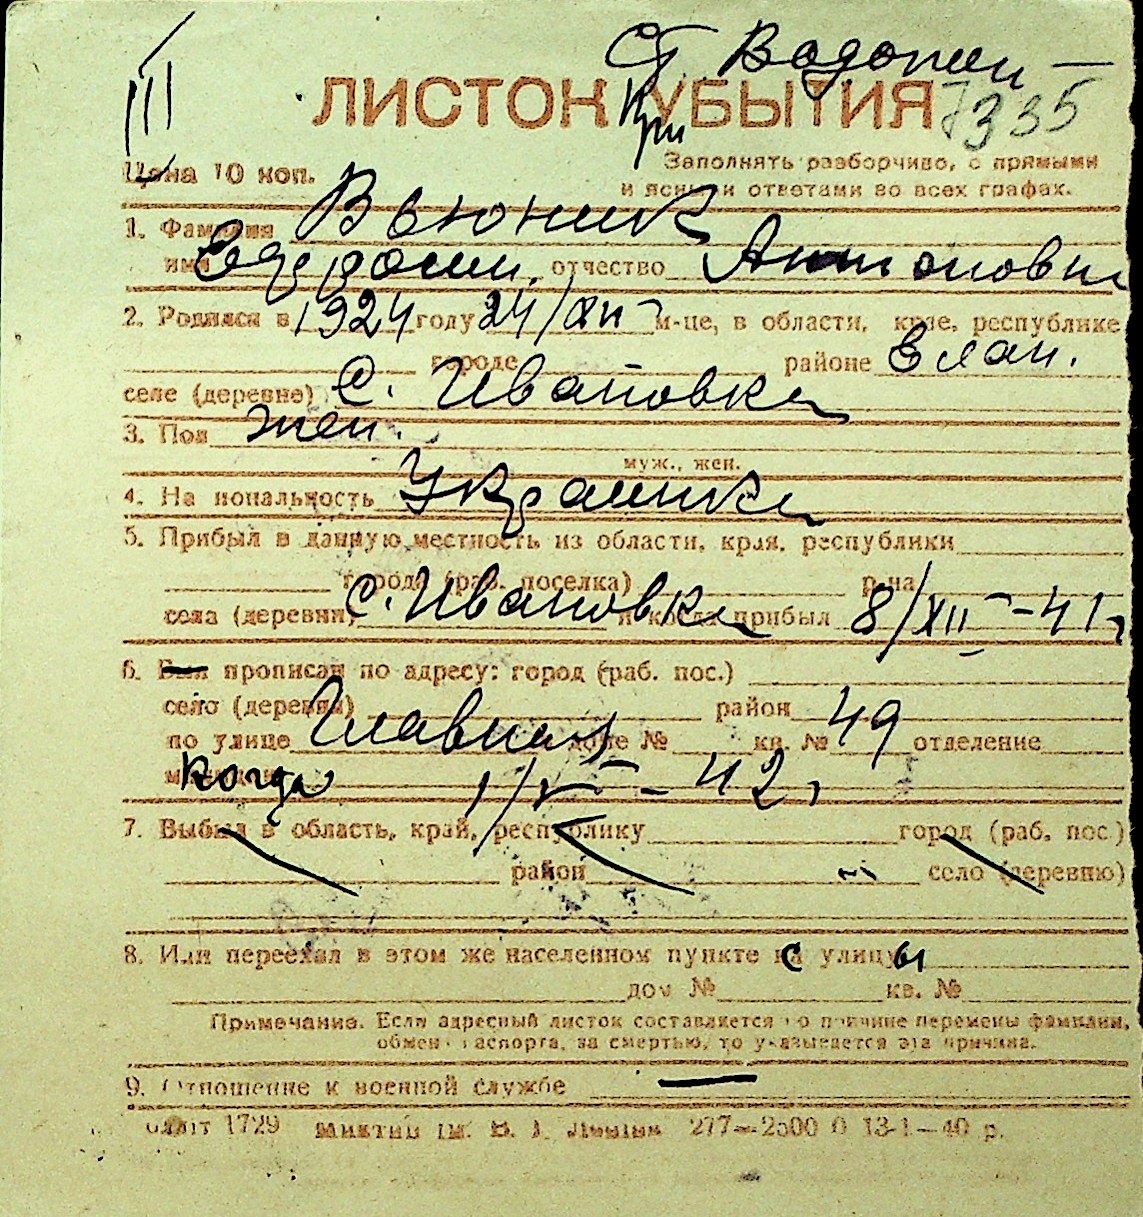 III
Ст Водопии
ЛИСТОК УБЫТИЯ
7335
Цена 10 коп.
Заполнять разборчиво, с прямыми
и ясными ответами во всех графах.
1. Фамилия Вьюник
имя отчество Антоновна
2. Родился в 1924 году 24/XII м-це, в области, крае, республике
городе районе Елан.
селе (деревне) с. Ивановка
3. Пол жен.
муж., жен.
4. Национальность Украинка
5. Прибыл в данную местность из области, края, республики
города (раб. поселка) р-на
села (деревни) с. Ивановка и когда прибыл 8/XII-41 г
6. Был прописан по адресу: город (раб. пос.)
село (деревня) район
по улице Главная доме № кв. № 49 отделение
когда 1/V - 42 г
7. Выбыл в область, край, республику город (раб. пос.)
район село (деревню)
8. Или переехал в этом же населенном пункте с улицы
дом № кв. №
Примечание. Если адресный листок составляется по причине перемены фамилии,
обмена паспорта, за смертью, то указывается эта причина.
9. Отношение к военной службе —
1729 277—2500 0 13-1—40 р.